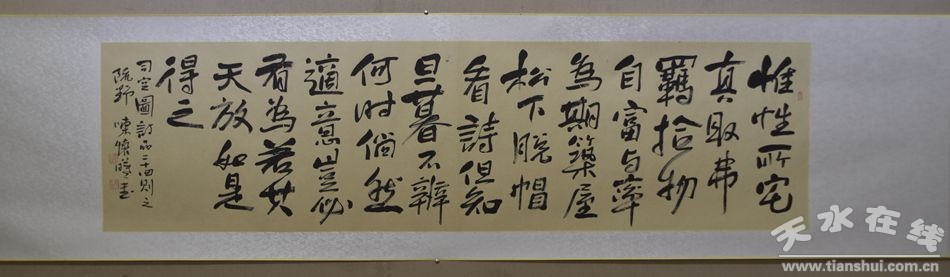 惟性所宅
真取弗
羈拾物
自富与率
為期築屋
松下脱帽
看詩但知
旦暮不辨
何时倘然
適意豈必
有為若其
天放如是
得之
司空圖詩品二十四则之
疏野
天水在线
www.tianshui.com.cn